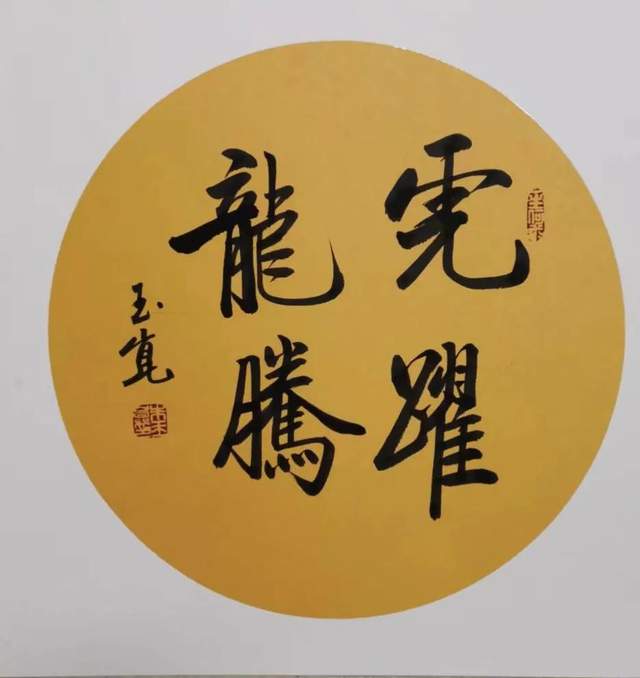 虎躍
龍騰
玉寬